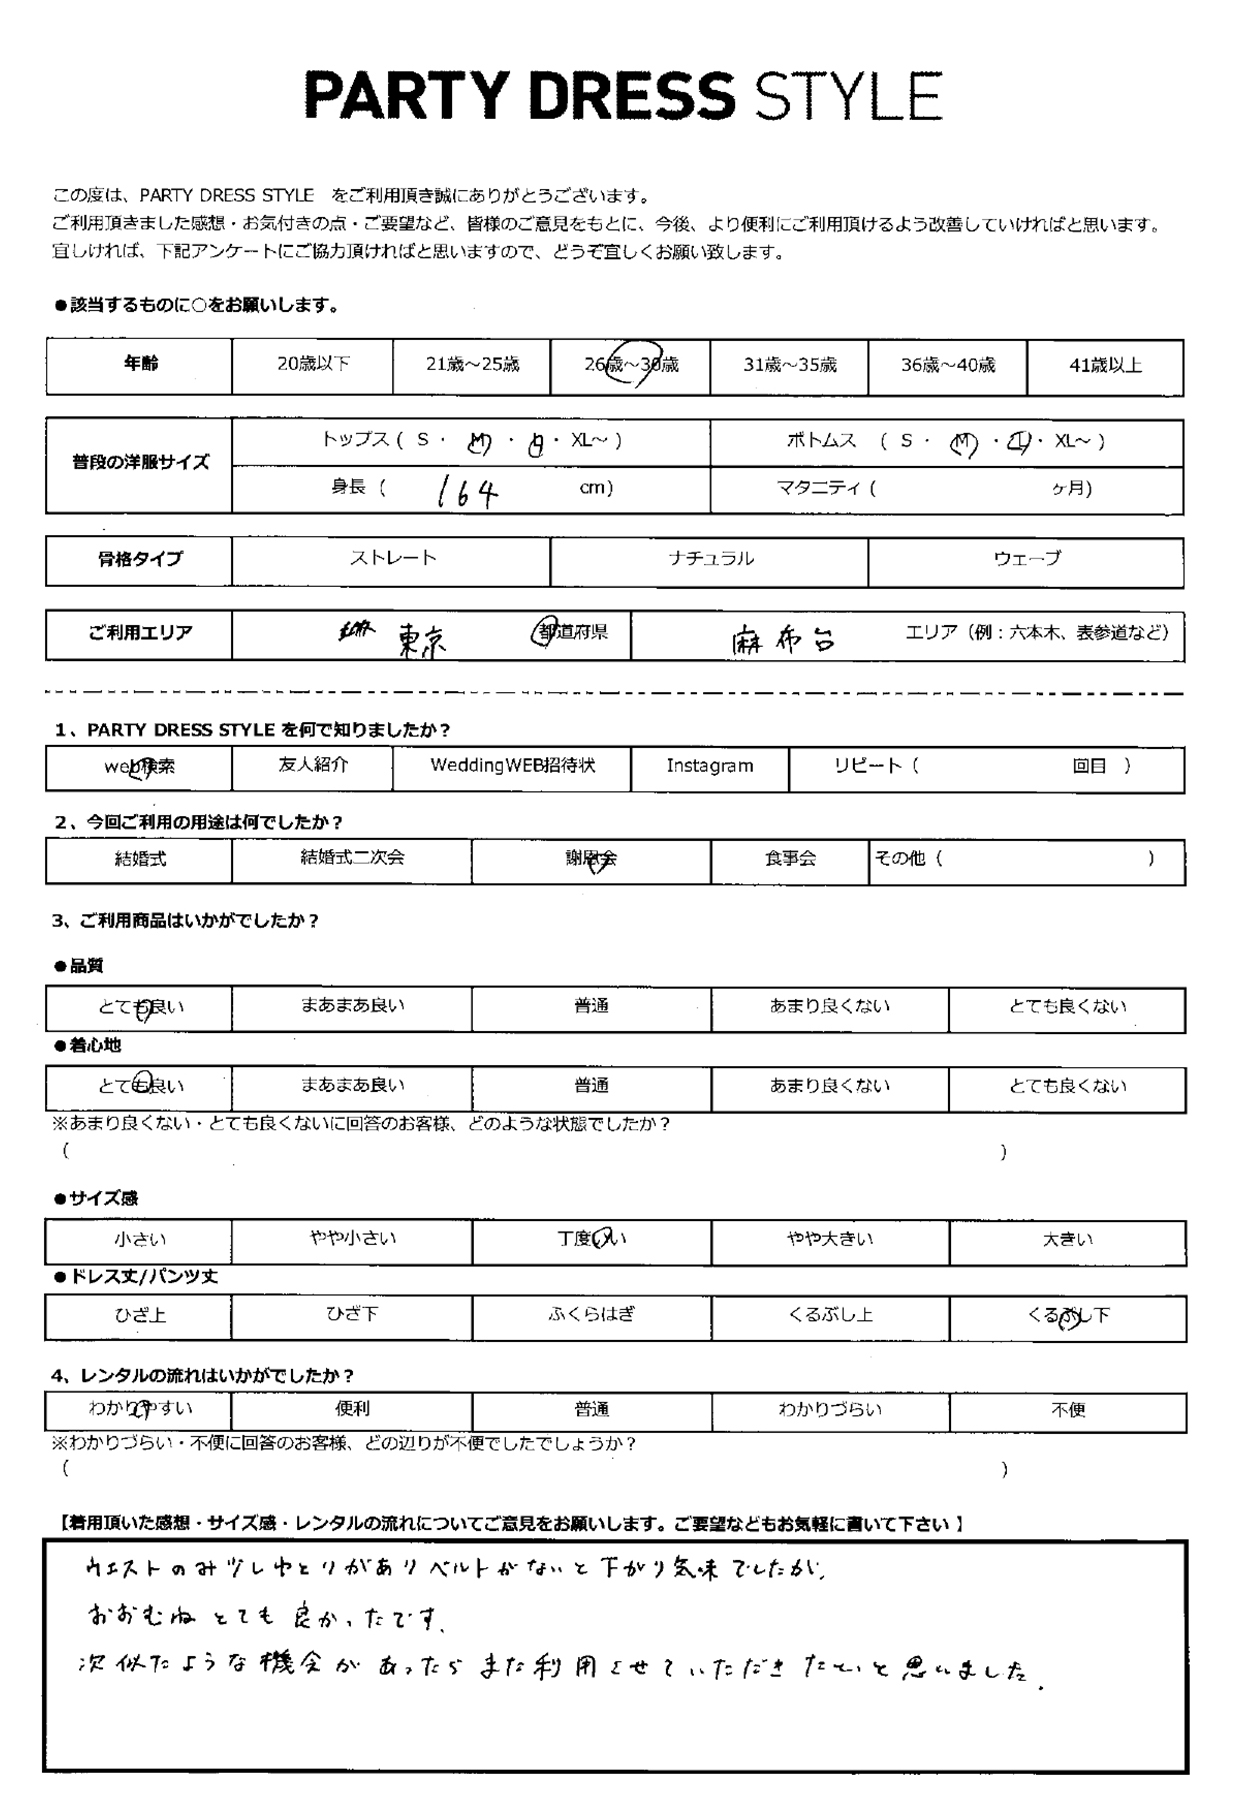 PARTY DRESS STYLE
この度は、PARTY DRESS STYLE をご利用頂き誠にありがとうございます。
ご利用頂きました感想・お気付きの点・ご要望など、皆様のご意見をもとに、今後、より便利にご利用頂けるよう改善していければと思います。
宜しければ、下記アンケートにご協力頂ければと思いますので、どうぞ宜しくお願い致します。
●該当するものに○をお願いします。
年齢 20歳以下 21歳～25歳 26歳～30歳 31歳～35歳 36歳～40歳 41歳以上
普段の洋服サイズ トップス ( S ・ M ・ L ・ XL～ ) ボトムス ( S ・ M ・ L ・ XL～ )
身長 ( 164 cm) マタニティ ( ヶ月)
骨格タイプ ストレート ナチュラル ウェーブ
ご利用エリア 東京 都道府県 麻布台 エリア（例：六本木、表参道など）
1、PARTY DRESS STYLE を何で知りましたか？
web検索 友人紹介 WeddingWEB招待状 Instagram リピート ( 回目 )
2、今回ご利用の用途は何でしたか？
結婚式 結婚式二次会 謝恩会 食事会 その他 ( )
3、ご利用商品はいかがでしたか？
●品質
とても良い まあまあ良い 普通 あまり良くない とても良くない
●着心地
とても良い まあまあ良い 普通 あまり良くない とても良くない
※あまり良くない・とても良くないに回答のお客様、どのような状態でしたか？
( )
●サイズ感
小さい やや小さい 丁度いい やや大きい 大きい
●ドレス丈/パンツ丈
ひざ上 ひざ下 ふくらはぎ くるぶし上 くるぶし下
4、レンタルの流れはいかがでしたか？
わかりやすい 便利 普通 わかりづらい 不便
※わかりづらい・不便に回答のお客様、どの辺りが不便でしたでしょうか？
( )
【着用頂いた感想・サイズ感・レンタルの流れについてご意見をお願いします。ご要望などもお気軽に書いて下さい 】
ウエストのみ少しゆとりがありベルトがないと下がり気味でしたが、
おおむねとても良かったです。
次似たような機会があったらまた利用させていただきたいと思いました。